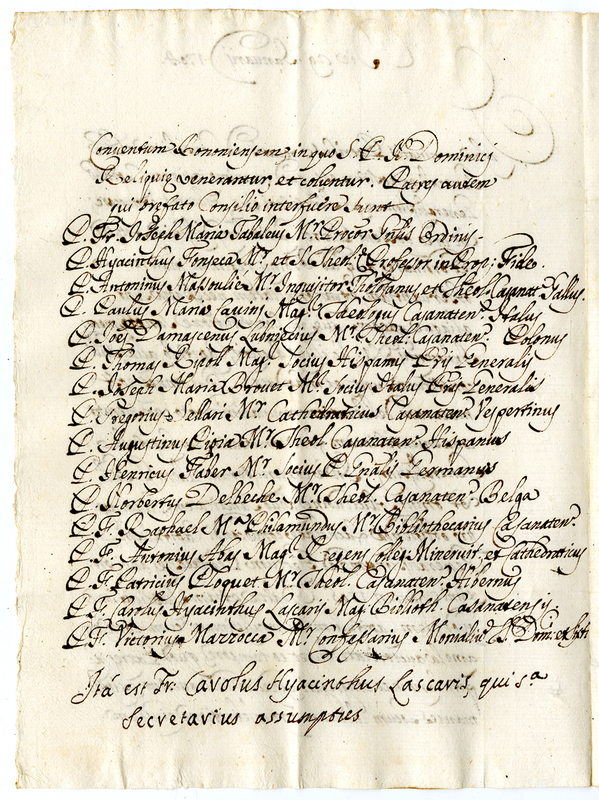 Conventum Bononiensem, in quo S. P. N. Dominici
Reliquię venerantur, et coluntur. Patres autem
qui prefato Consilio interfuere sunt
P. Fr. Joseph Maria Tabaleus Mr. Procor Ordinis.
P. Hyacinthus Fonseca Mr. et S. Theol. Professor in Prop. Fide.
P. Antoninus Massoulié Mr. Inquisitor Tholosanus et Theol. Casanat. Gallus.
P. Paulus Maria Mag. Theologus Casanaten. Italus
P. Joes Damascenus Lubiezecius Mr. Theol. Casanaten. Polonus
P. Thomas Ripoll Mag. Socius Hispanus Pris Generalis
P. Joseph Maria Mr. Socius Italus Pris Generalis
P. Gregorius Sellari Mr. Cathedraticus Casanaten. Vespertinus
P. Augustinus Pipia Mr. Theol. Casanaten. Hispanus
P. Henricus Faber Mr. Socius P. Gnalis Germanus
P. Norbertus Delbeche Mr. Theol. Casanaten. Belga
P. F. Raphael Ma. Philamundus Mr. Bibliothecarius Casanaten.
P. F. Antonius Abas Mag. Regens Coleg. Mineruit. et Cathedraticus
P. F. Patricius Mr. Theol. Casanaten. Hibernus
P. F. Carolus Hyacinthus Lascaris Mag. Biblioth. Casanatensis
P. Fr. Victorius Mazzocca Mr. Confessarius Monialium
Ità est Fr. Carolus Hyacinthus Lascaris, qui sa.
Secretarius assumptus